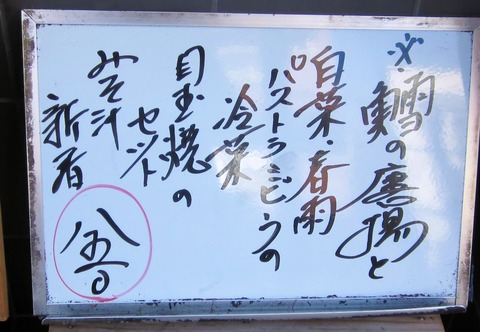 鱈の唐揚と
白菜・春雨
パストラミビーフの
冷菜
目玉焼の
セット
みそ汁
新香